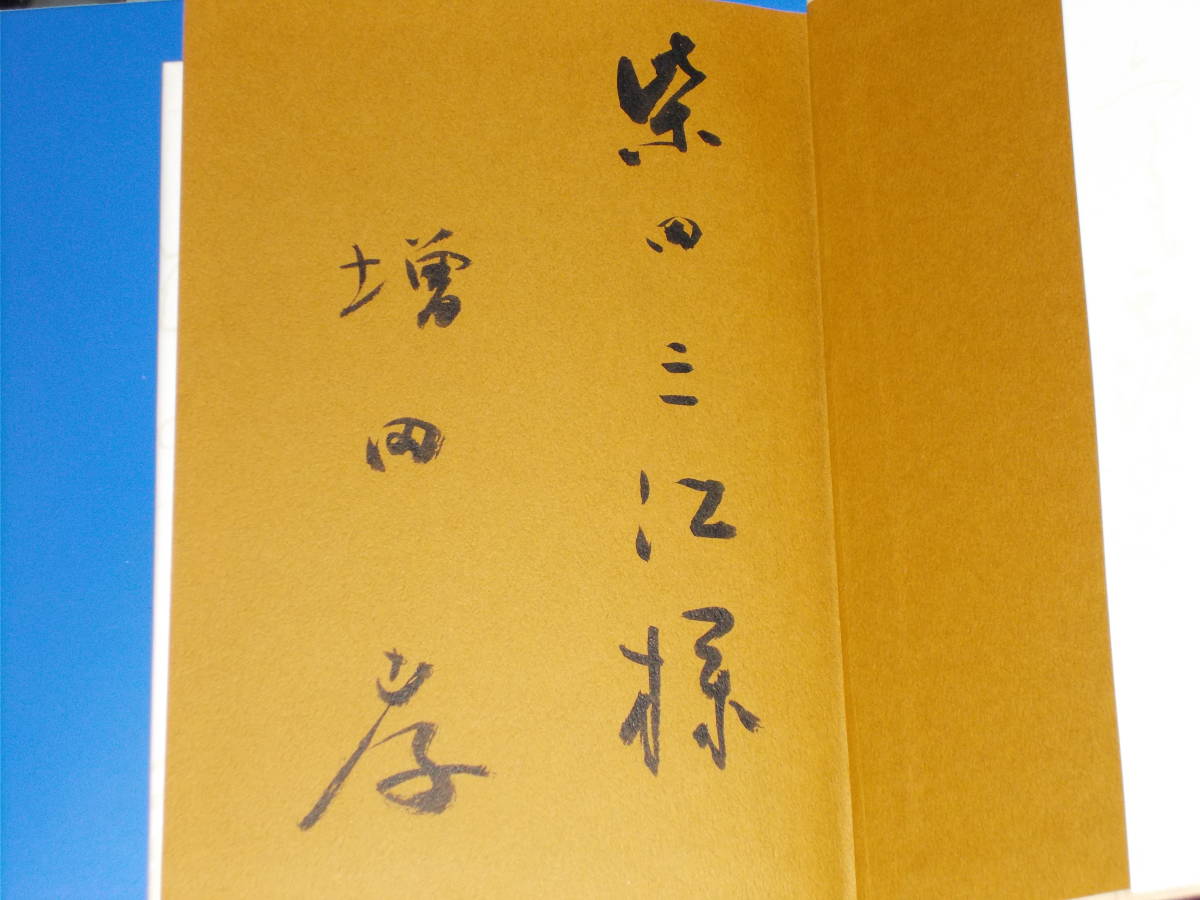 柴田三江様
増田孝